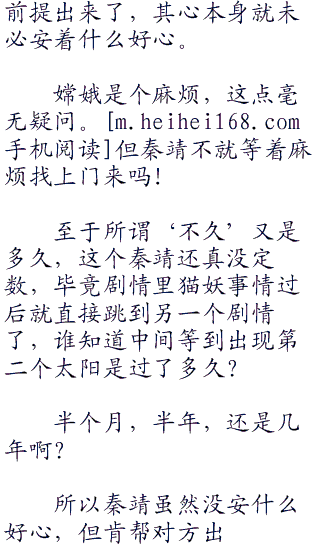 前提出来了，其心本身就未
必安着什么好心。
嫦娥是个麻烦，这点毫
无疑问。[m.heihei168.com
手机阅读]但秦靖不就等着麻
烦找上门来吗!
至于所谓‘不久’又是
多久，这个秦靖还真没定
数，毕竟剧情里猫妖事情过
后就直接跳到另一个剧情
了，谁知道中间等到出现第
二个太阳是过了多久?
半个月，半年，还是几
年啊?
所以秦靖虽然没安什么
好心，但肯帮对方出